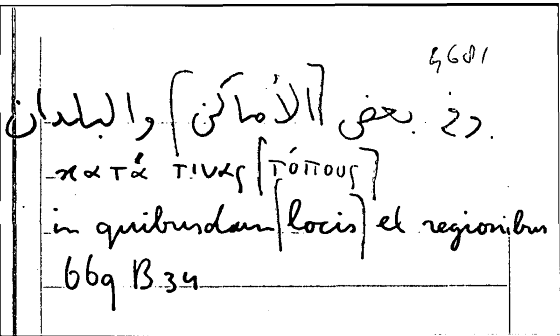 4681
وفي بعض [الأماكن] والبلدان
κατά τινας [τόπους]
in quibusdam [locis] et regionibus
669 B 34